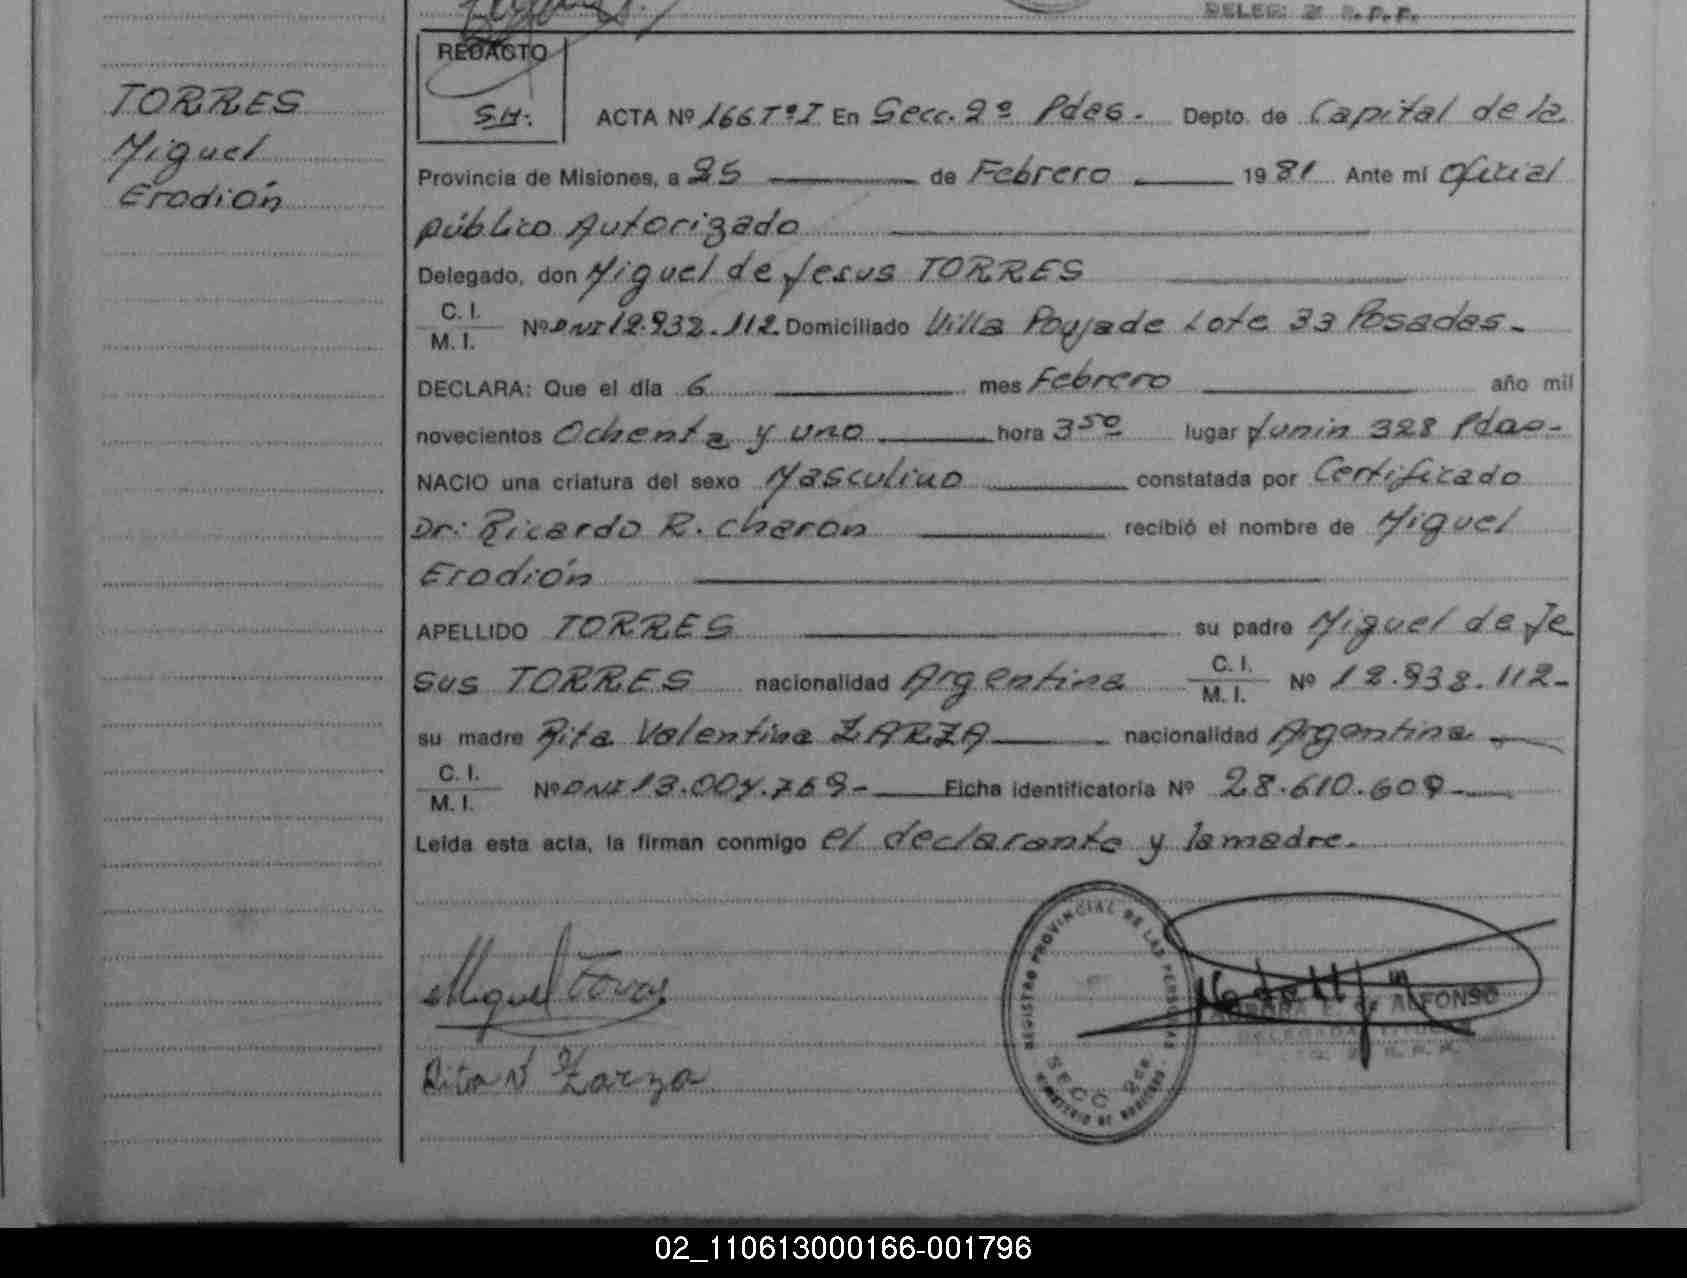 DELEG: 2ª R.P.P.
REDACTO
S.H:
TORRES
Miguel
Erodión
ACTA Nº 166 Tº I En Secc. 2º Pdas. Depto. de Capital de la
Provincia de Misiones, a 25 de Febrero 1981 Ante mi Oficial
público Autorizado
Delegado, don Miguel de Jesus TORRES
C. I.
M. I. Nº DNI 12.932.112 Domiciliado Villa Poujade Lote 33 Posadas.
DECLARA: Que el día 6 mes Febrero año mil
novecientos Ochenta y uno hora 3⁵⁰ lugar Junin 328 Pdas-
NACIO una criatura del sexo Masculino constatada por Certificado
Dr: Ricardo R. Charon recibió el nombre de Miguel
Erodión
APELLIDO TORRES su padre Miguel de Je
sus TORRES nacionalidad Argentina C. I. M. I. Nº 12.932.112-
su madre Rita Valentina ZARZA nacionalidad Argentina
C. I.
M. I. Nº DNI 13.004.769- Ficha identificatoria Nº 28.610.609-
Leída esta acta, la firman conmigo el declarante y la madre.
Miguel Torres
Rita V Zarza
REGISTRO PROVINCIAL DE LAS PERSONAS
SECC 2da
MINISTERIO DE GOBIERNO
E. de ALFONSO
DELEGADA TITULAR
02_110613000166-001796